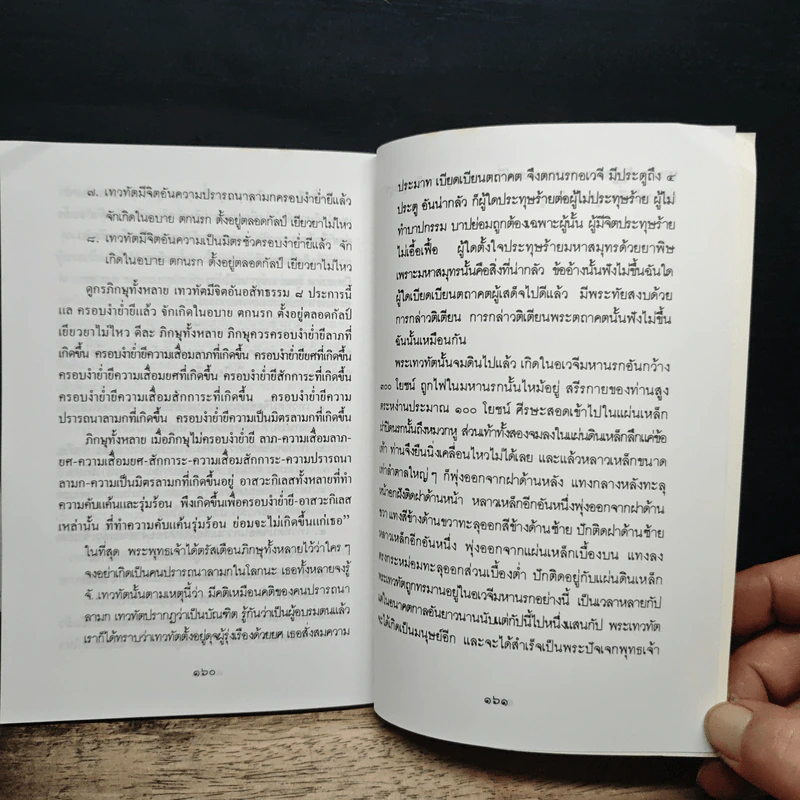 ๗. เทวทัตมีจิตอันความปรารถนาลามกครอบงำย่ำยีแล้ว
จักเกิดในอบาย ตกนรก ตั้งอยู่ตลอดกัลป์ เยียวยาไม่ไหว
๘. เทวทัตมีจิตอันความเป็นมิตรชั่วครอบงำย่ำยีแล้ว จัก
เกิดในอบาย ตกนรก ตั้งอยู่ตลอดกัลป์ เยียวยาไม่ไหว
ดูกรภิกษุทั้งหลาย เทวทัตมีจิตอันอสัทธรรม ๘ ประการนี้
แล ครอบงำย่ำยีแล้ว จักเกิดในอบาย ตกนรก ตั้งอยู่ตลอดกัลป์
เยียวยาไม่ไหว ดีละ ภิกษุทั้งหลาย ภิกษุควรครอบงำย่ำยีลาภที่
เกิดขึ้น ครอบงำย่ำยีความเสื่อมลาภที่เกิดขึ้น ครอบงำย่ำยียศที่เกิดขึ้น
ครอบงำย่ำยีความเสื่อมยศที่เกิดขึ้น ครอบงำย่ำยีสักการะที่เกิดขึ้น
ครอบงำย่ำยีความเสื่อมสักการะที่เกิดขึ้น ครอบงำย่ำยีความ
ปรารถนาลามกที่เกิดขึ้น ครอบงำย่ำยีความเป็นมิตรลามกที่เกิดขึ้น
ภิกษุทั้งหลาย เมื่อภิกษุไม่ครอบงำย่ำยี ลาภ-ความเสื่อมลาภ-
ยศ-ความเสื่อมยศ-สักการะ-ความเสื่อมสักการะ-ความปรารถนา
ลามก-ความเป็นมิตรลามกที่เกิดขึ้นอยู่ อาสวะกิเลสทั้งหลายที่ทำ
ความคับแค้นและรุ่มร้อน พึงเกิดขึ้นเพื่อครอบงำย่ำยี-อาสวะกิเลส
เหล่านั้น ที่ทำความคับแค้นรุ่มร้อน ย่อมจะไม่เกิดขึ้นแก่เธอ”
ในที่สุด พระพุทธเจ้าได้ตรัสเตือนภิกษุทั้งหลายไว้ว่าใคร ๆ
จงอย่าเกิดเป็นคนปรารถนาลามกในโลกนะ เธอทั้งหลายจงรู้
จั. เทวทัตนั้นตามเหตุนี้ว่า มีคติเหมือนคติของคนปรารถนา
ลามก เทวทัตปรากฏว่าเป็นบัณฑิต รู้กันว่าเป็นผู้อบรมตนแล้ว
เราก็ได้ทราบว่าเทวทัตตั้งอยู่ดุจผู้รุ่งเรืองด้วยยศ เธอสั่งสมความ
๑๖๐
ประมาท เบียดเบียนตถาคต จึงตกนรกอเวจี มีประตูถึง ๔
ประตู อันน่ากลัว ก็ผู้ใดประทุษร้ายต่อผู้ไม่ประทุษร้าย ผู้ไม่
ทำบาปกรรม บาปย่อมถูกต้องเฉพาะผู้นั้น ผู้มีจิตประทุษร้าย
ไม่เอื้อเฟื้อ ผู้ใดตั้งใจประทุษร้ายมหาสมุทรด้วยยาพิษ
เพราะมหาสมุทรนั้นคือสิ่งที่น่ากลัว ข้ออ้างนั้นฟังไม่ขึ้นอันใด
ผู้ใดเบียดเบียนตถาคตผู้เสด็จไปดีแล้ว มีพระทัยสงบด้วย
การกล่าวติเตียน การกล่าวติเตียนพระตถาคตนั้นฟังไม่ขึ้น
ฉันนั้นเหมือนกัน
พระเทวทัตนั้นจมดินไปแล้ว เกิดในอเวจีมหานรกอันกว้าง
๑๐๐ โยชน์ ถูกไฟในมหานรกนั้นไหม้อยู่ สรีรกายของท่านสูง
ตระหง่านประมาณ ๑๐๐ โยชน์ ศีรษะสอดเข้าไปในแผ่นเหล็ก
ฝาปิดนรกนั้นถึงหมวกหู ส่วนเท้าทั้งสองจมลงในแผ่นดินเหล็กลึกแค่ข้อ
เท้า ท่านจึงยืนนิ่งเคลื่อนไหวไม่ได้เลย และแล้วหลาวเหล็กขนาด
เท่าลำตาลใหญ่ๆ ก็พุ่งออกจากฝาด้านหลัง แทงกลางหลังทะลุ
หน้าอกฝังติดฝาด้านหน้า หลาวเหล็กอีกอันหนึ่งพุ่งออกจากฝาด้าน
ขวา แทงสีข้างด้านขวาทะลุออกสีข้างด้านซ้าย ปักติดฝาด้านซ้าย
หลาวเหล็กอีกอันหนึ่ง พุ่งออกจากแผ่นเหล็กเบื้องบน แทงลง
ตรงกระหม่อมทะลุออกส่วนเบื้องต่ำ ปักติดอยู่กับแผ่นดินเหล็ก
พระเทวทัตถูกทรมานอยู่ในอเวจีมหานรกอย่างนี้ เป็นเวลาหลายกัป
แต่ในอนาคตกาลอันยาวนานนับแต่กัปนี้ไปหนึ่งแสนกัป พระเทวทัต
จะได้เกิดเป็นมนุษย์อีก และจะได้สำเร็จเป็นพระปัจเจกพุทธเจ้า
๑๖๑